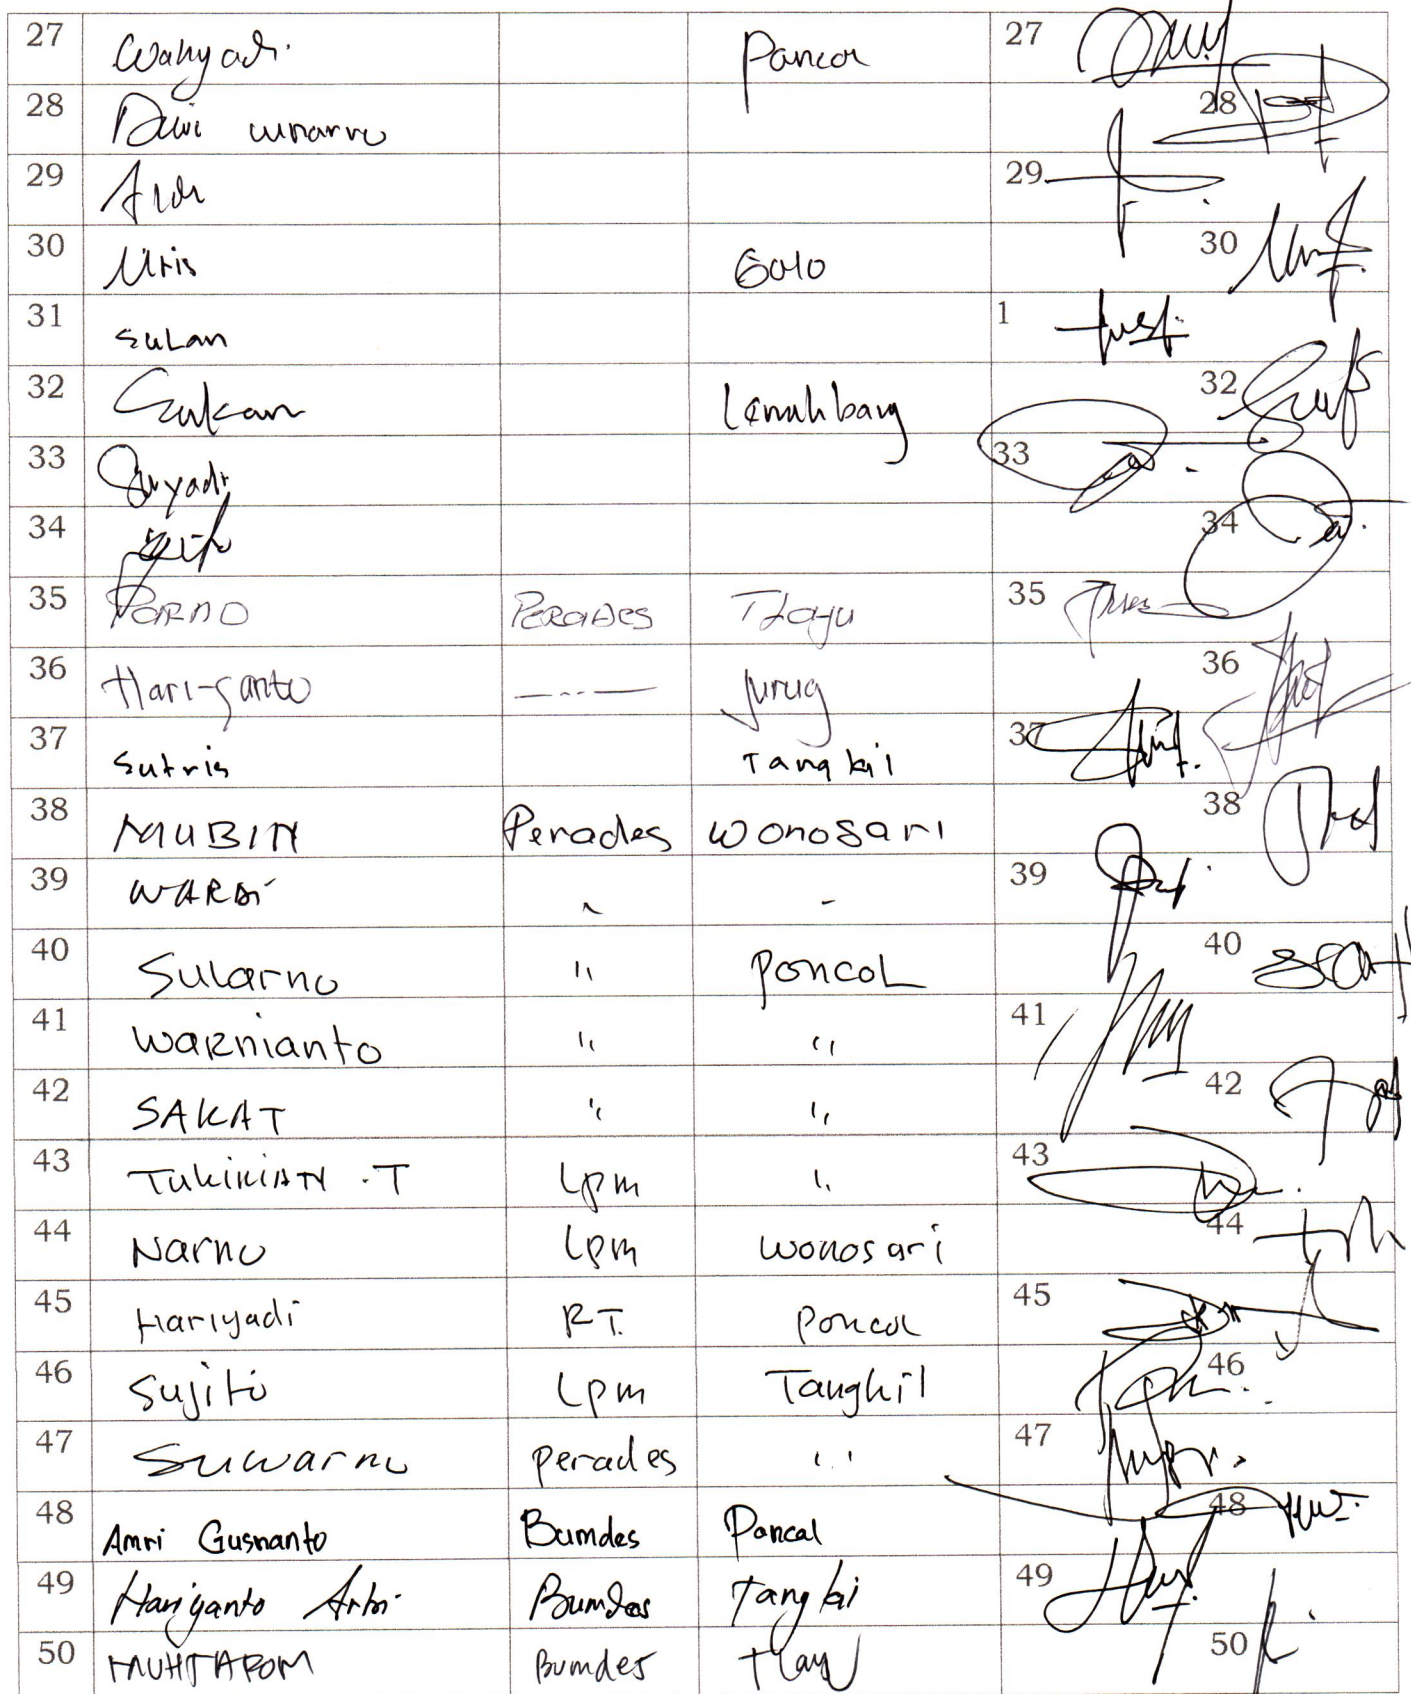 27 Wahyadi Poncol 27
28 Dwi winarno 28
29 Ardi 29
30 Uris Golo 30
31 Sulan 1
32 Sukan Lemahbang 32
33 Suyadi 33
34 34
35 PORNO PERADES Tlogu 35
36 Hari-santo —··— Jurug 36
37 Sutris Tangkil 37
38 MUBIN Perades Wonosari 38
39 WARDI " - 39
40 Sularno " PONCOL 40
41 Warnianto " " 41
42 SAKAT " " 42
43 TUKIMAN .T Lpm " 43
44 Narno Lpm Wonosari 44
45 Hariyadi RT. Poncol 45
46 Sujito Lpm Tangkil 46
47 Suwarno Perades " 47
48 Amri Gusnanto Bumdes Poncol 48
49 Hariyanto Bumdes Tangkil 49
50 MUHTAROM Bumdes 50